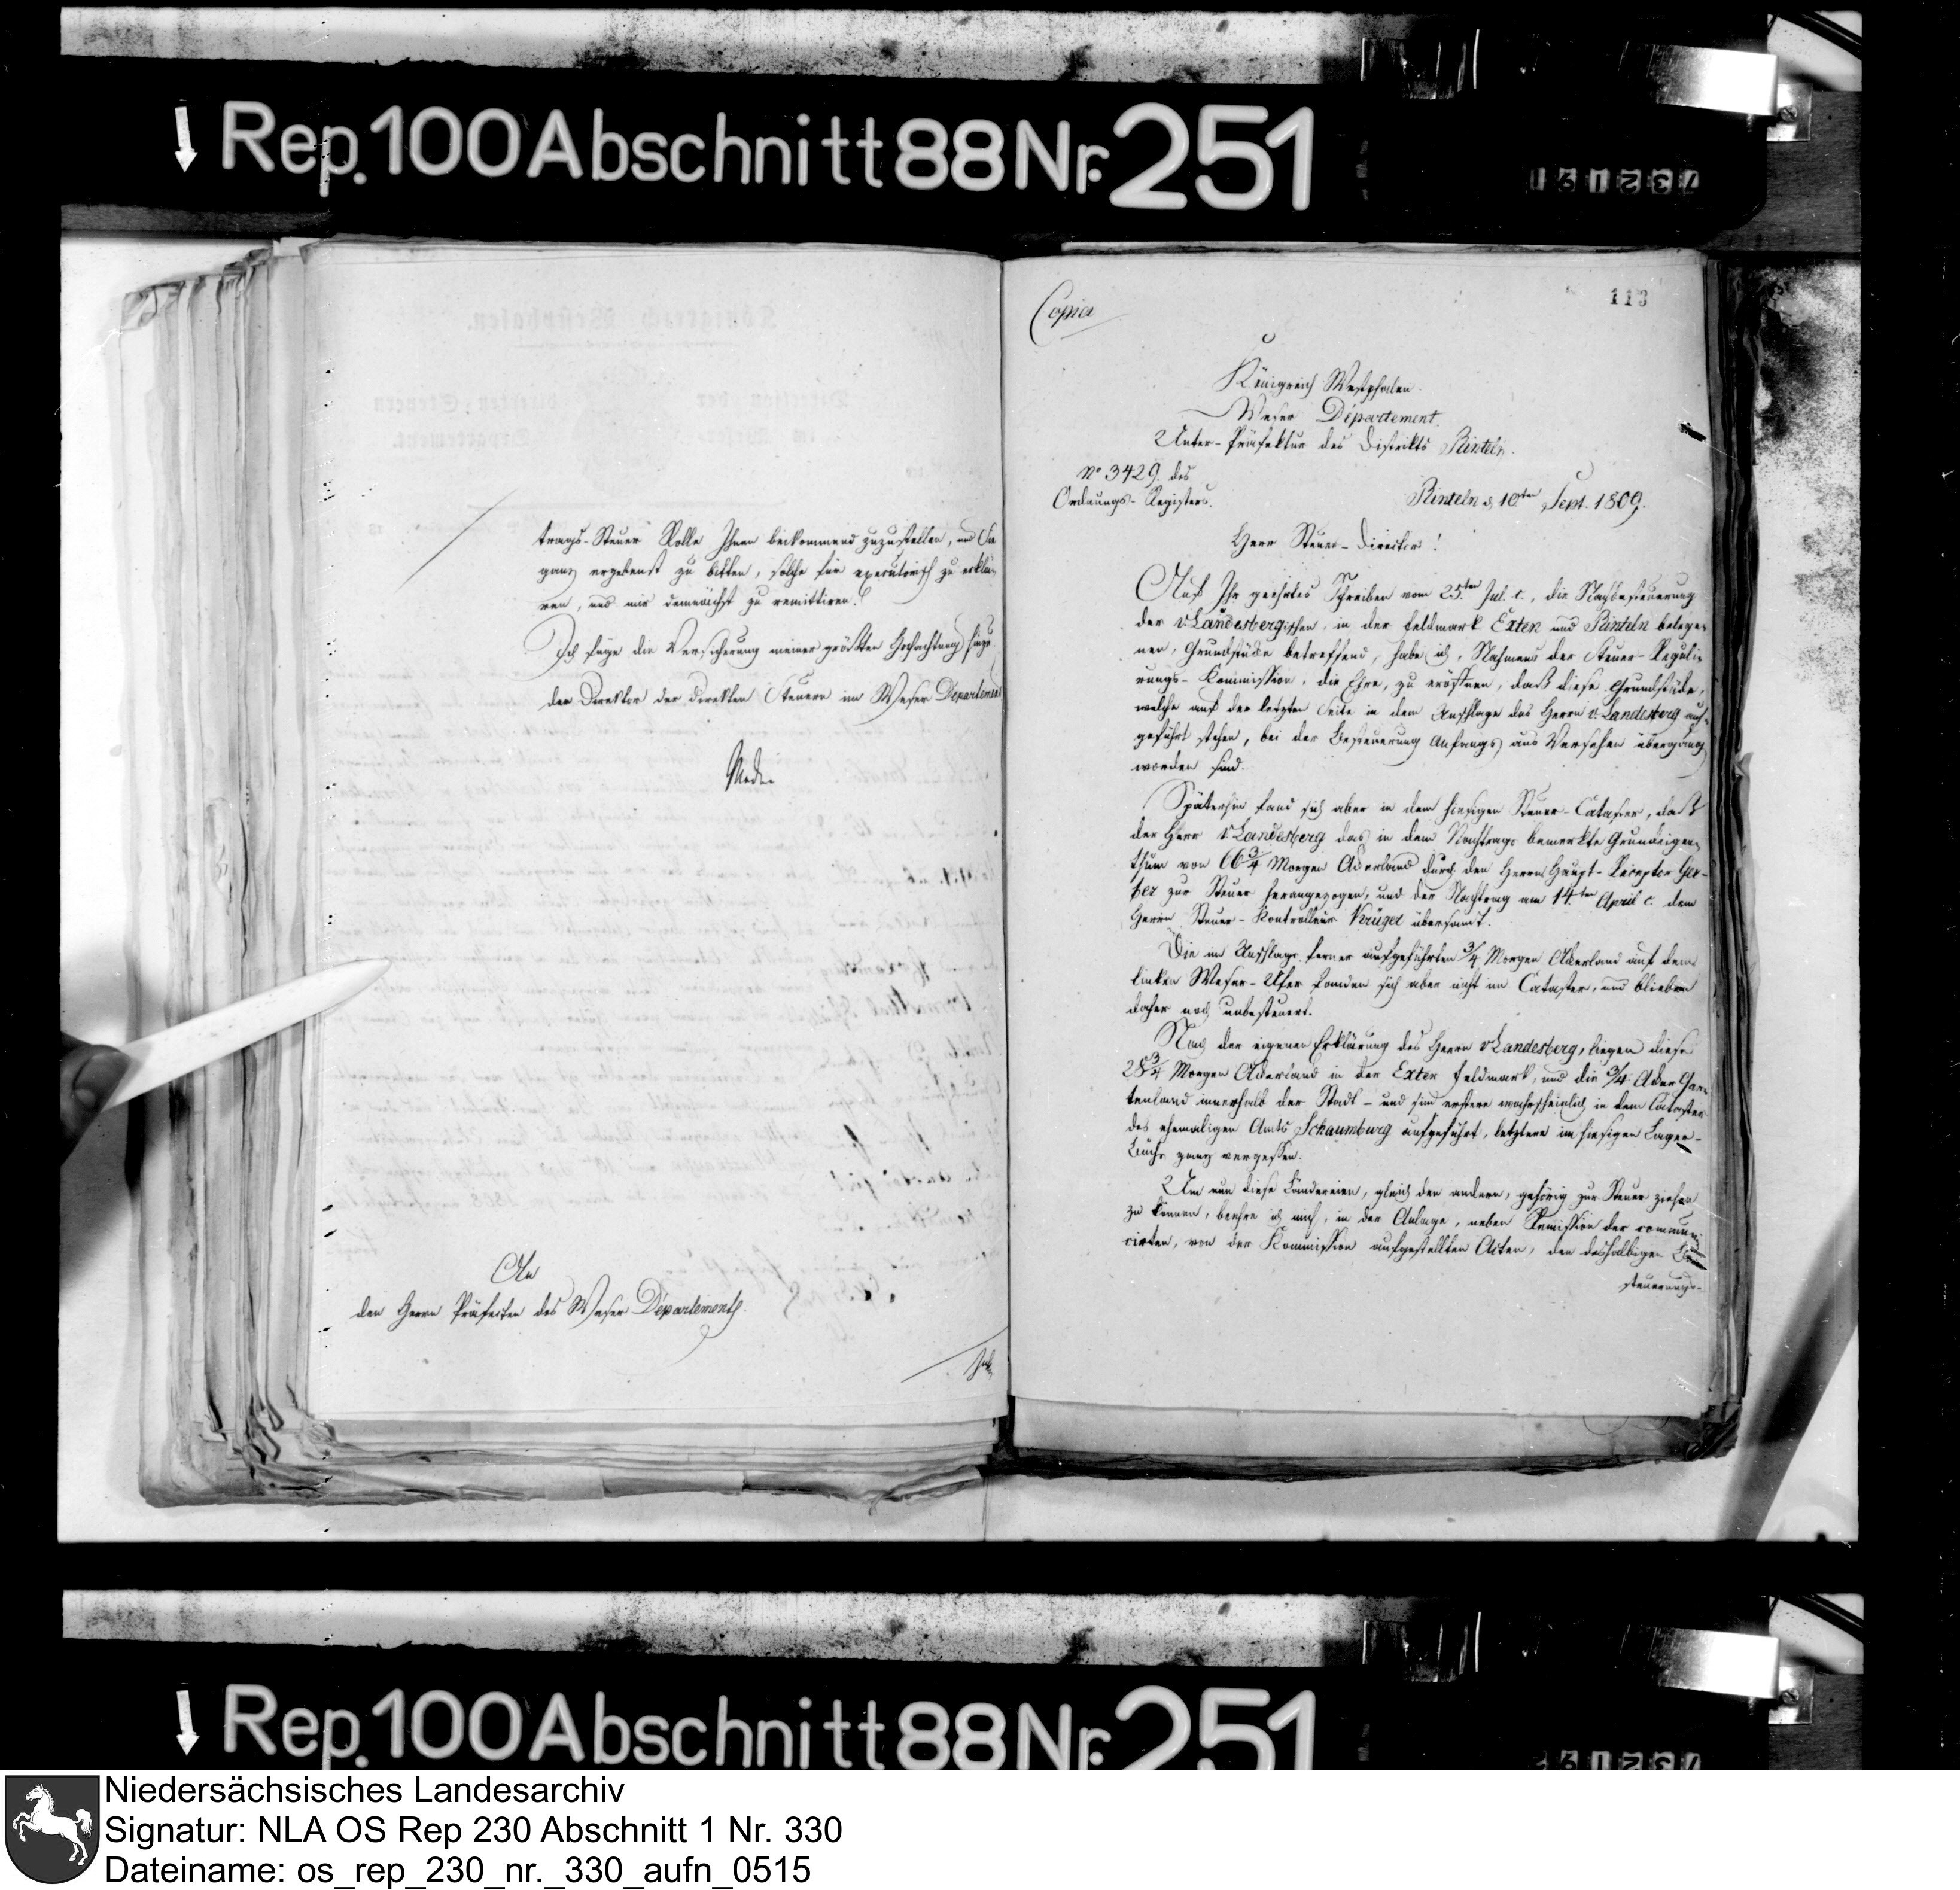 Rep. 100 Abschnitt 88 Nr. 251
trags-Steuer Rolle Ihnen beikommend zuzustellen, und Sie
ganz ergebenst zu bitten, solche für executorisch zu erklä-
ren, und mir demnächst zu remittiren.
Ich füge die Versicherung meiner größten Hochachtung hinzu.
der Direktor der direkten Steuern im Weser Departement
An
den Herrn Präfecten des Weser Departements.
113
Copia
Königreich Westphalen.
Weser Département.
Unter-Präfektur des Distrikts Rinteln.
No 3429. des
Ordnungs-Registers.
Rinteln d 10ten Sept. 1809.
Herr Steuer-Director!
Auf Ihr geehrtes Schreiben vom 25ten Jul. c., die Nachbesteuerung
der v Landesbergischen, in der Feldmark Exten und Rinteln belege-
nen, Grundstücke betreffend, habe ich, Nahmens der Steuer-Reguli-
rungs-Kommission, die Ehre, zu eröffnen, daß diese Grundstücke,
welche auf der letzten Seite in dem Anschlage des Herrn v. Landesberg auf-
geführt stehen, bei der Besteuerung Anfangs aus Versehen übergangen
worden sind.
Späterhin fand sich aber in dem hiesigen Steuer-Cataster, daß
der Herr v Landesberg das in dem Nachtrage bemerkte Grundeigen-
thum von 66 3/4 Morgen Ackerland durch den Herrn Haupt-Receptor
zur Steuer herangezogen, und der Nachtrag am 14ten April c. dem
Herrn Steuer-Kontrolleur Krüger übersandt.
Die im Anschlage ferner aufgeführten 3/4 Morgen Ackerland auf dem
linken Weser-Ufer fanden sich aber nicht im Cataster, und blieben
daher noch unbesteuert.
Nach der eigenen Erklärung des Herrn v Landesberg, liegen diese
28 3/4 Morgen Ackerland in der Exter Feldmark, und die 3/4 Acker Gar-
tenland innerhalb der Stadt - und sind erstere wahrscheinlich in dem Cataster
des ehemaligen Amts Schaumburg aufgeführt, letztere im hiesigen Lager-
Buche ganz vergessen.
Um nun diese Ländereien, gleich den andern, gehörig zur Steuer ziehen
zu können, beehre ich mich, in der Anlage, neben Remission der communi-
cirten, von der Kommission aufgestellten Acten, den deshalbigen Be-
steuerungs-
Rep. 100 Abschnitt 88 Nr. 251
Niedersächsisches Landesarchiv
Signatur: NLA OS Rep 230 Abschnitt 1 Nr. 330
Dateiname: os_rep_230_nr._330_aufn_0515